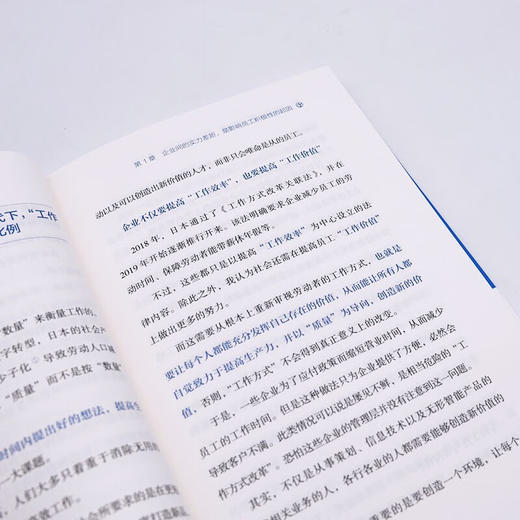 式下，“工作
比例
数量”来衡量工作的。
字转型，日本的社会产
少子化
导致劳动人口减
“质量”而不是按“数量
时间内提出好的想法，提高生
一大课题。
人们大多只着重于消除无用
效工作。
会所要求的是在到
打造新
第1章 企业间的实力差距，是影响员工积极性的起因
动以及可以创造出新价值的人才，而非只会唯命是从的员工。
企业不仅要提高“工作效率”，也要提高“工作价值”
2018年，日本通过了《工作方式改革关联法》，并在
2019年开始逐渐推行开来。该法明确要求企业减少员工的劳
动时间、保障劳动者能带薪休年假等。
不过，这些都只是以提高“工作效率”为中心设立的法
律内容。除此之外，我认为社会还需在提高员工“工作价值”
上做出更多的努力。
而这需要从根本上重新审视劳动者的工作方式，也就是
要让每个人都能充分发挥自己存在的价值，从而能让所有人都
自觉致力于提高生产力，并以“质量”为导向，创造新的价
值，否则，“工作方式”不会得到真正意义上的改变。
于是，一些企业为了应付政策而缩短营业时间，从而减少
员工的工作时间。但是这种做法只为企业提供了方便，必然会
导致客户不满。此类情况可以说是屡见不鲜，是相当危险的“工
作方式改革”。恐怕这些企业的管理层并没有注意到这一问题。
其实，不仅是从事策划、信息技术以及无形智能产品的
相关业务的人，各行各业的人都需要能够创造新价值的
重要的是要创造一个环境，让每个